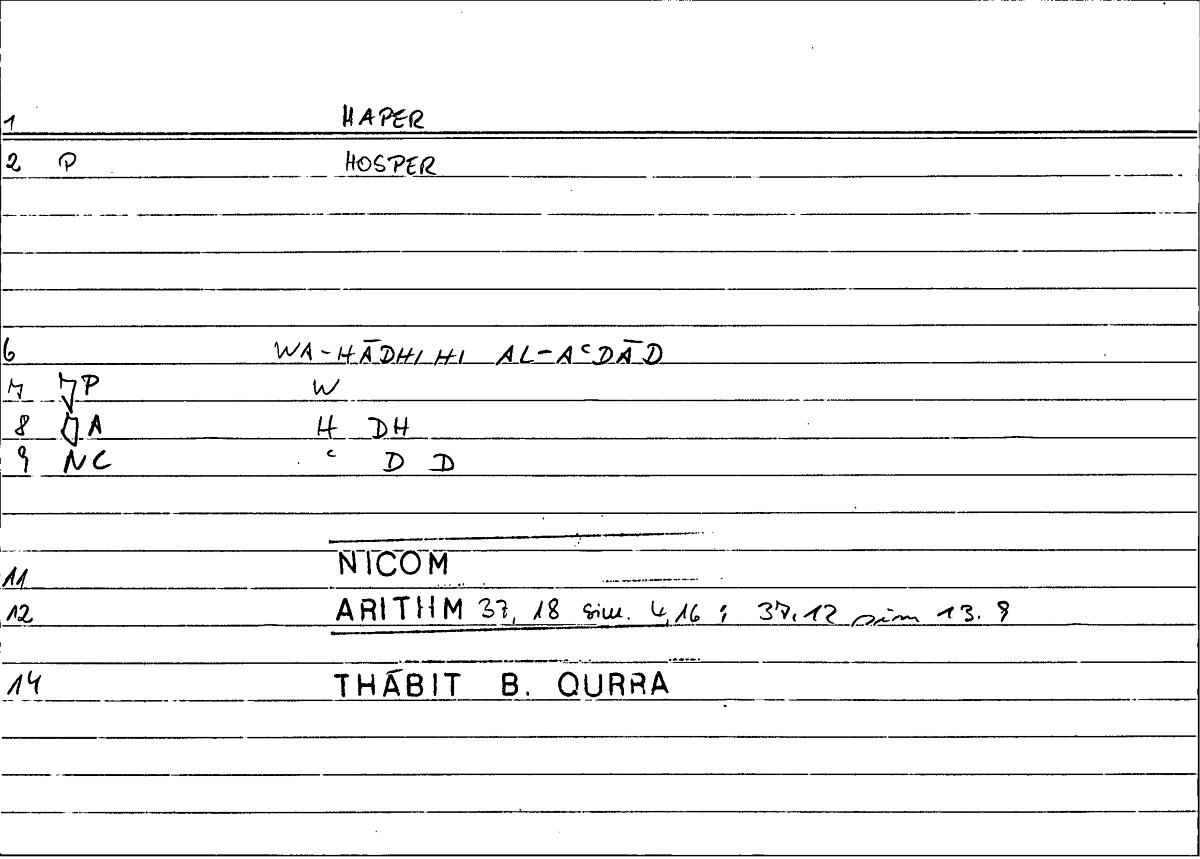 1 HAPER
2 P HOSPER
6 WA-HĀDHIHI AL-AᶜDĀD
7 P W
8 A H DH
9 NC ᶜ D D
11 NICOM
12 ARITHM 37, 18 sim. 4,16 ; 37.12 sim 13. 9
14 THĀBIT B. QURRA